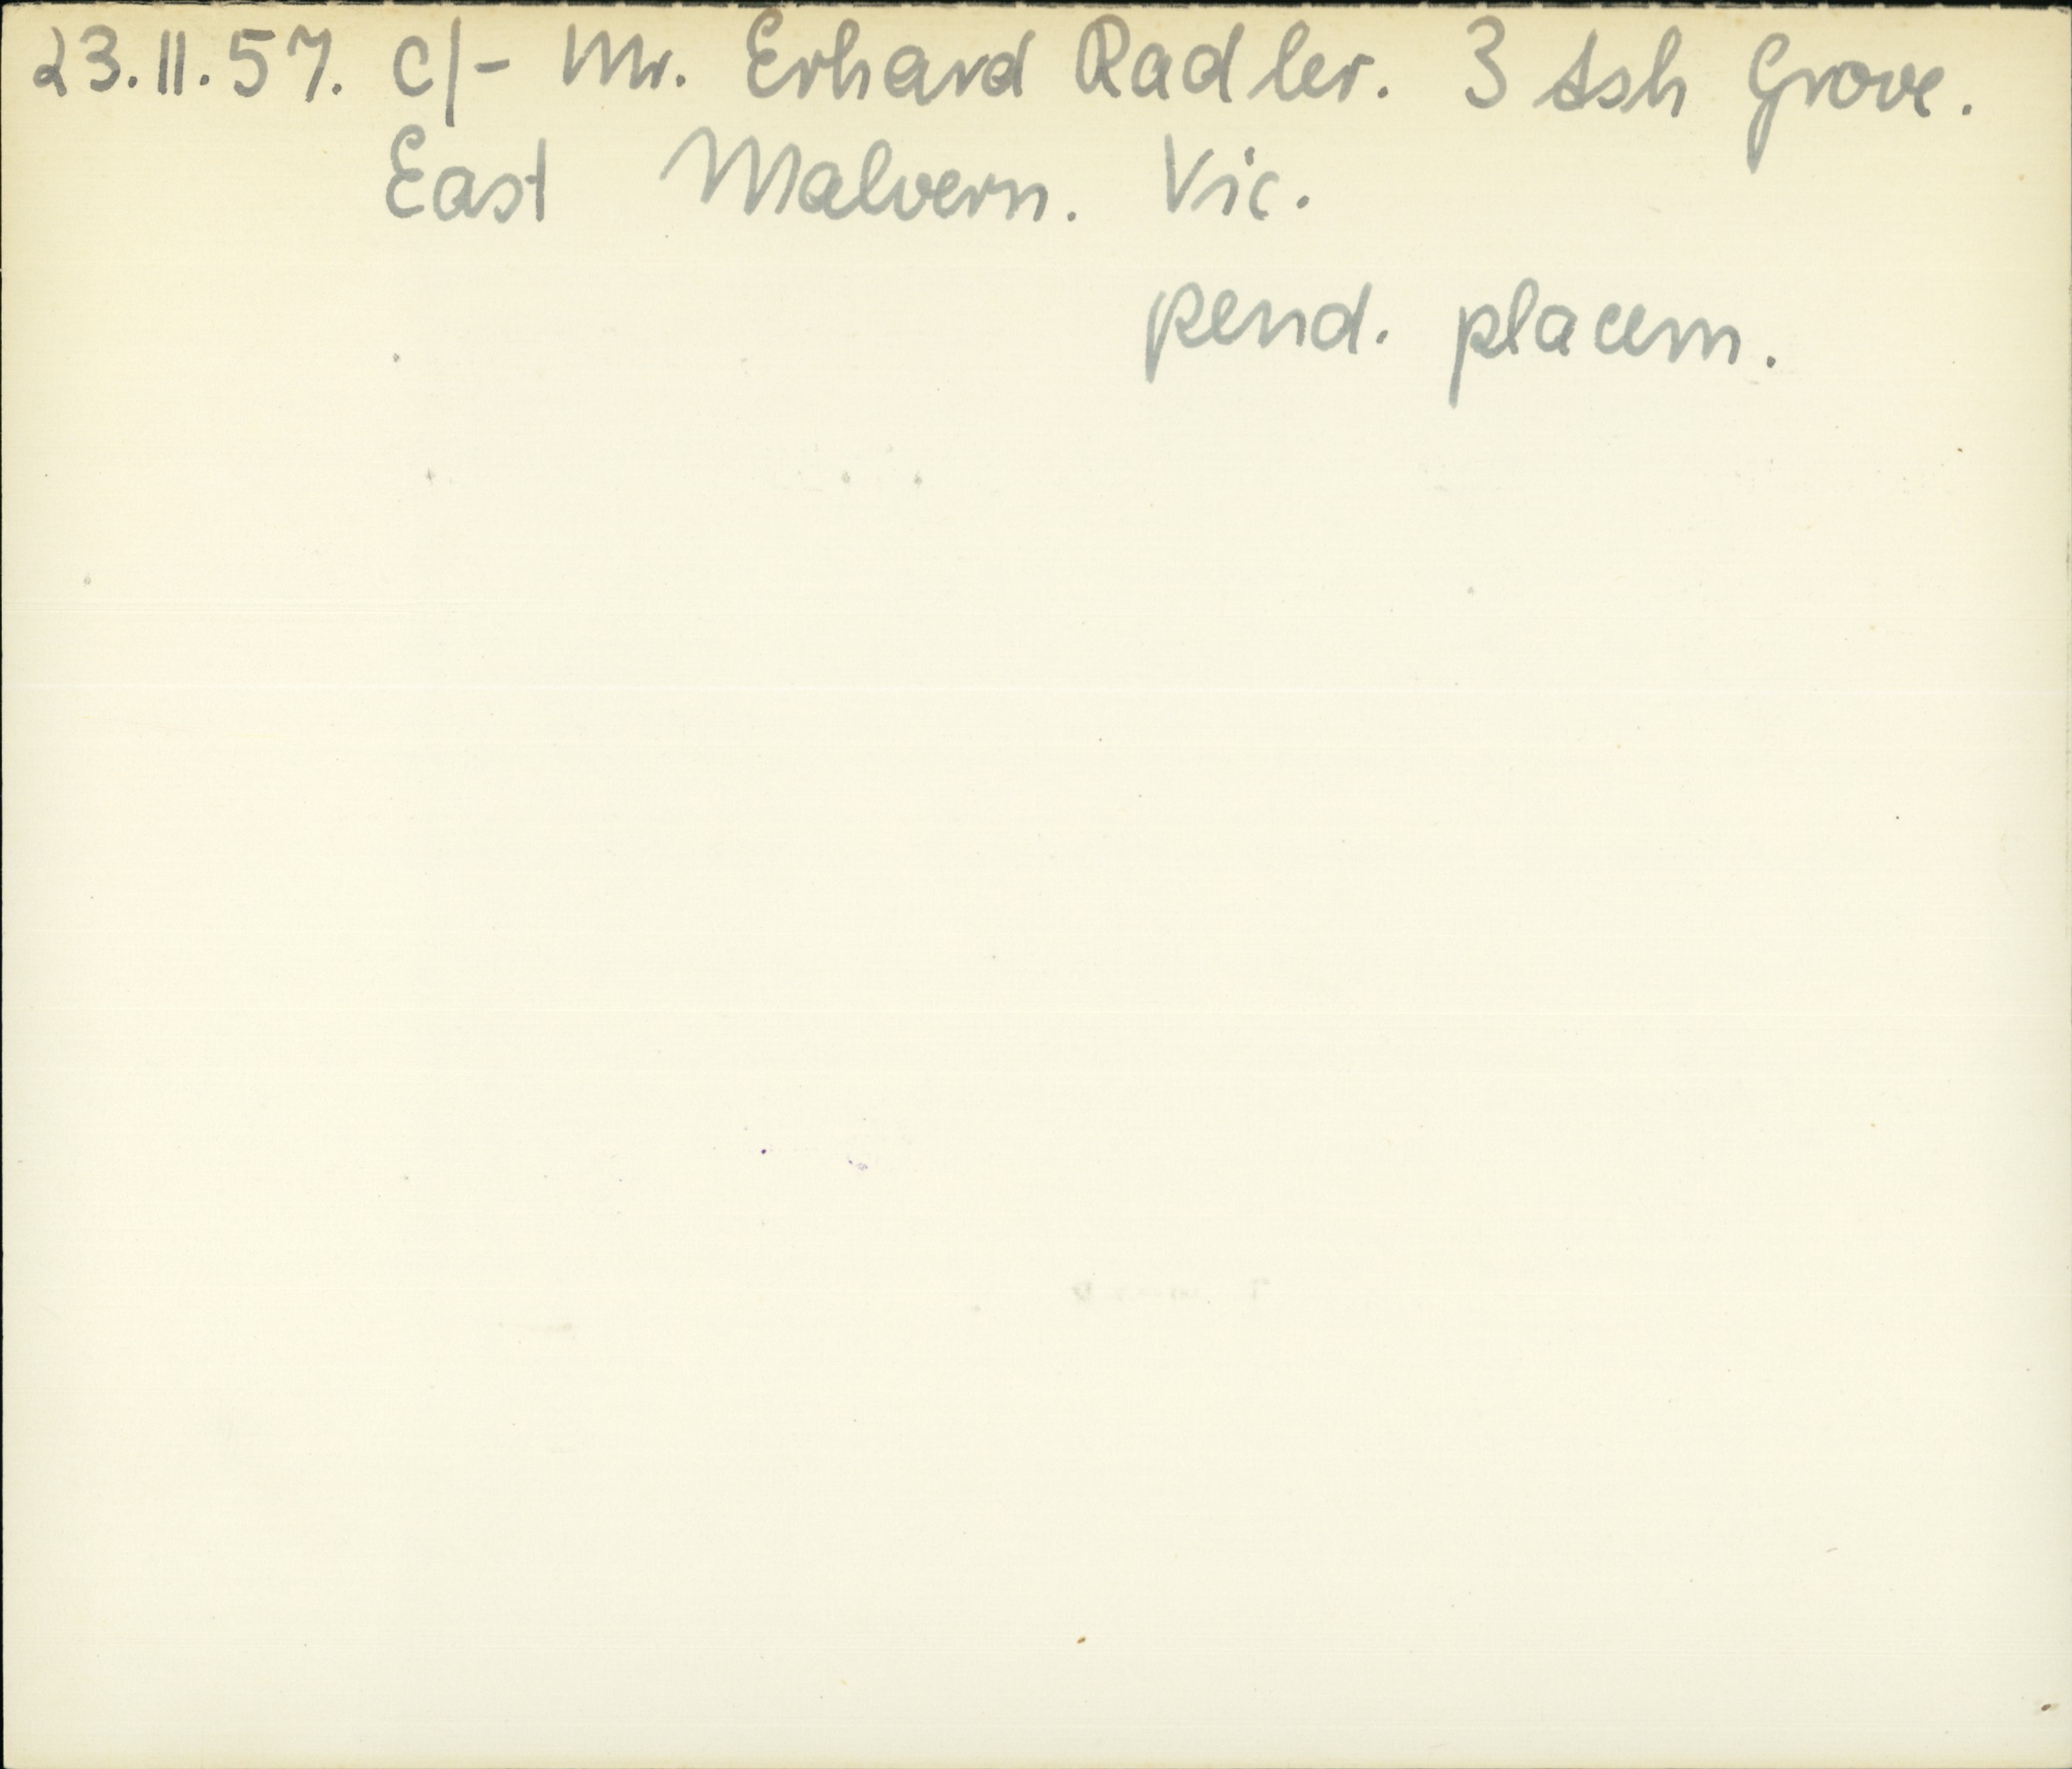 23.11.57. c/- Mr. Erhard Radler. 3 Ash Grove.
East Malvern. Vic.
pend. placem.